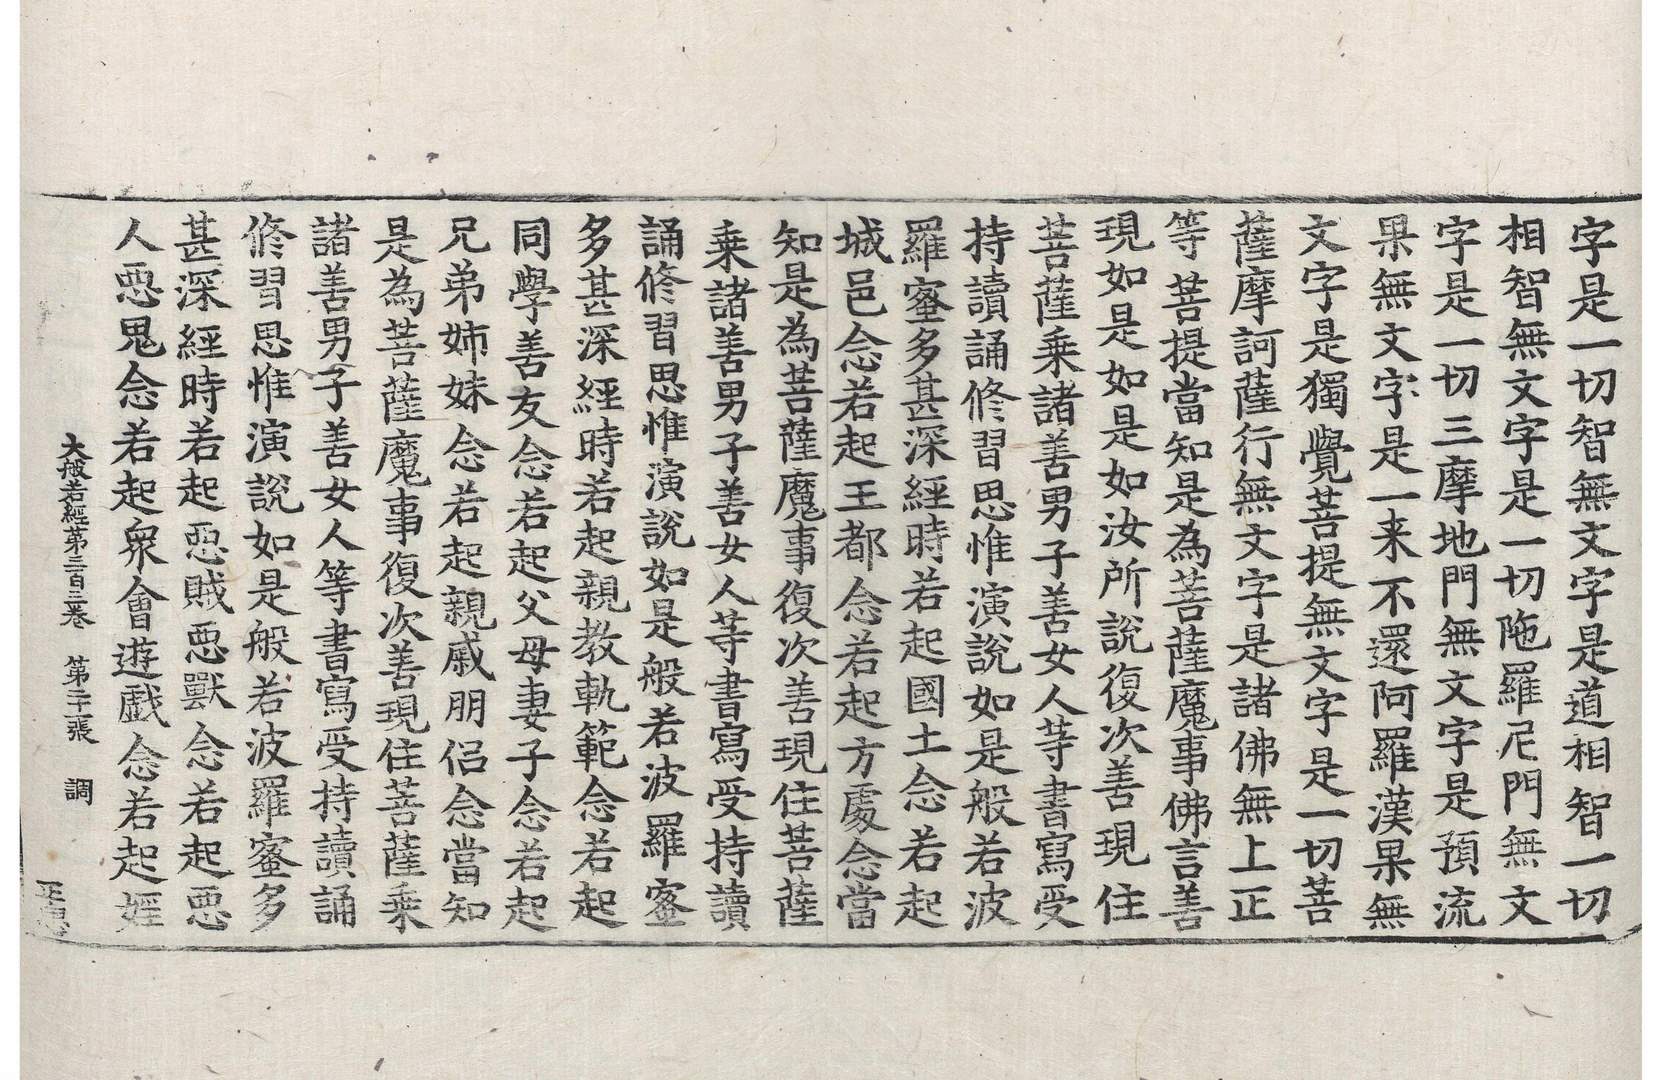 字是一切智無文字是道相智一切
相智無文字是一切陁羅尼門無文
字是一切三摩地門無文字是預流
果無文字是一来不還阿羅漢果無
文字是獨覺菩提無文字是一切菩
薩摩訶薩行無文字是諸佛無上正
等菩提當知是為菩薩魔事佛言善
現如是如是如汝所說復次善現住
菩薩乗諸善男子善女人等書寫受
持讀誦修習思惟演說如是般若波
羅蜜多甚深經時若起國土念若起
城邑念若起王都念若起方處念當
知是為菩薩魔事復次善現住菩薩
乗諸善男子善女人等書寫受持讀
誦修習思惟演說如是般若波羅蜜
多甚深經時若起親教軌範念若起
同學善友念若起父母妻子念若起
兄弟姉妹念若起親戚朋侣念當知
是為菩薩魔事復次善現住菩薩乗
諸善男子善女人等書寫受持讀誦
修習思惟演說如是般若波羅蜜多
甚深經時若起惡賊惡獸念若起惡
人惡鬼念若起衆會遊戲念若起婬
大般若經第三百三卷　第二十張　調